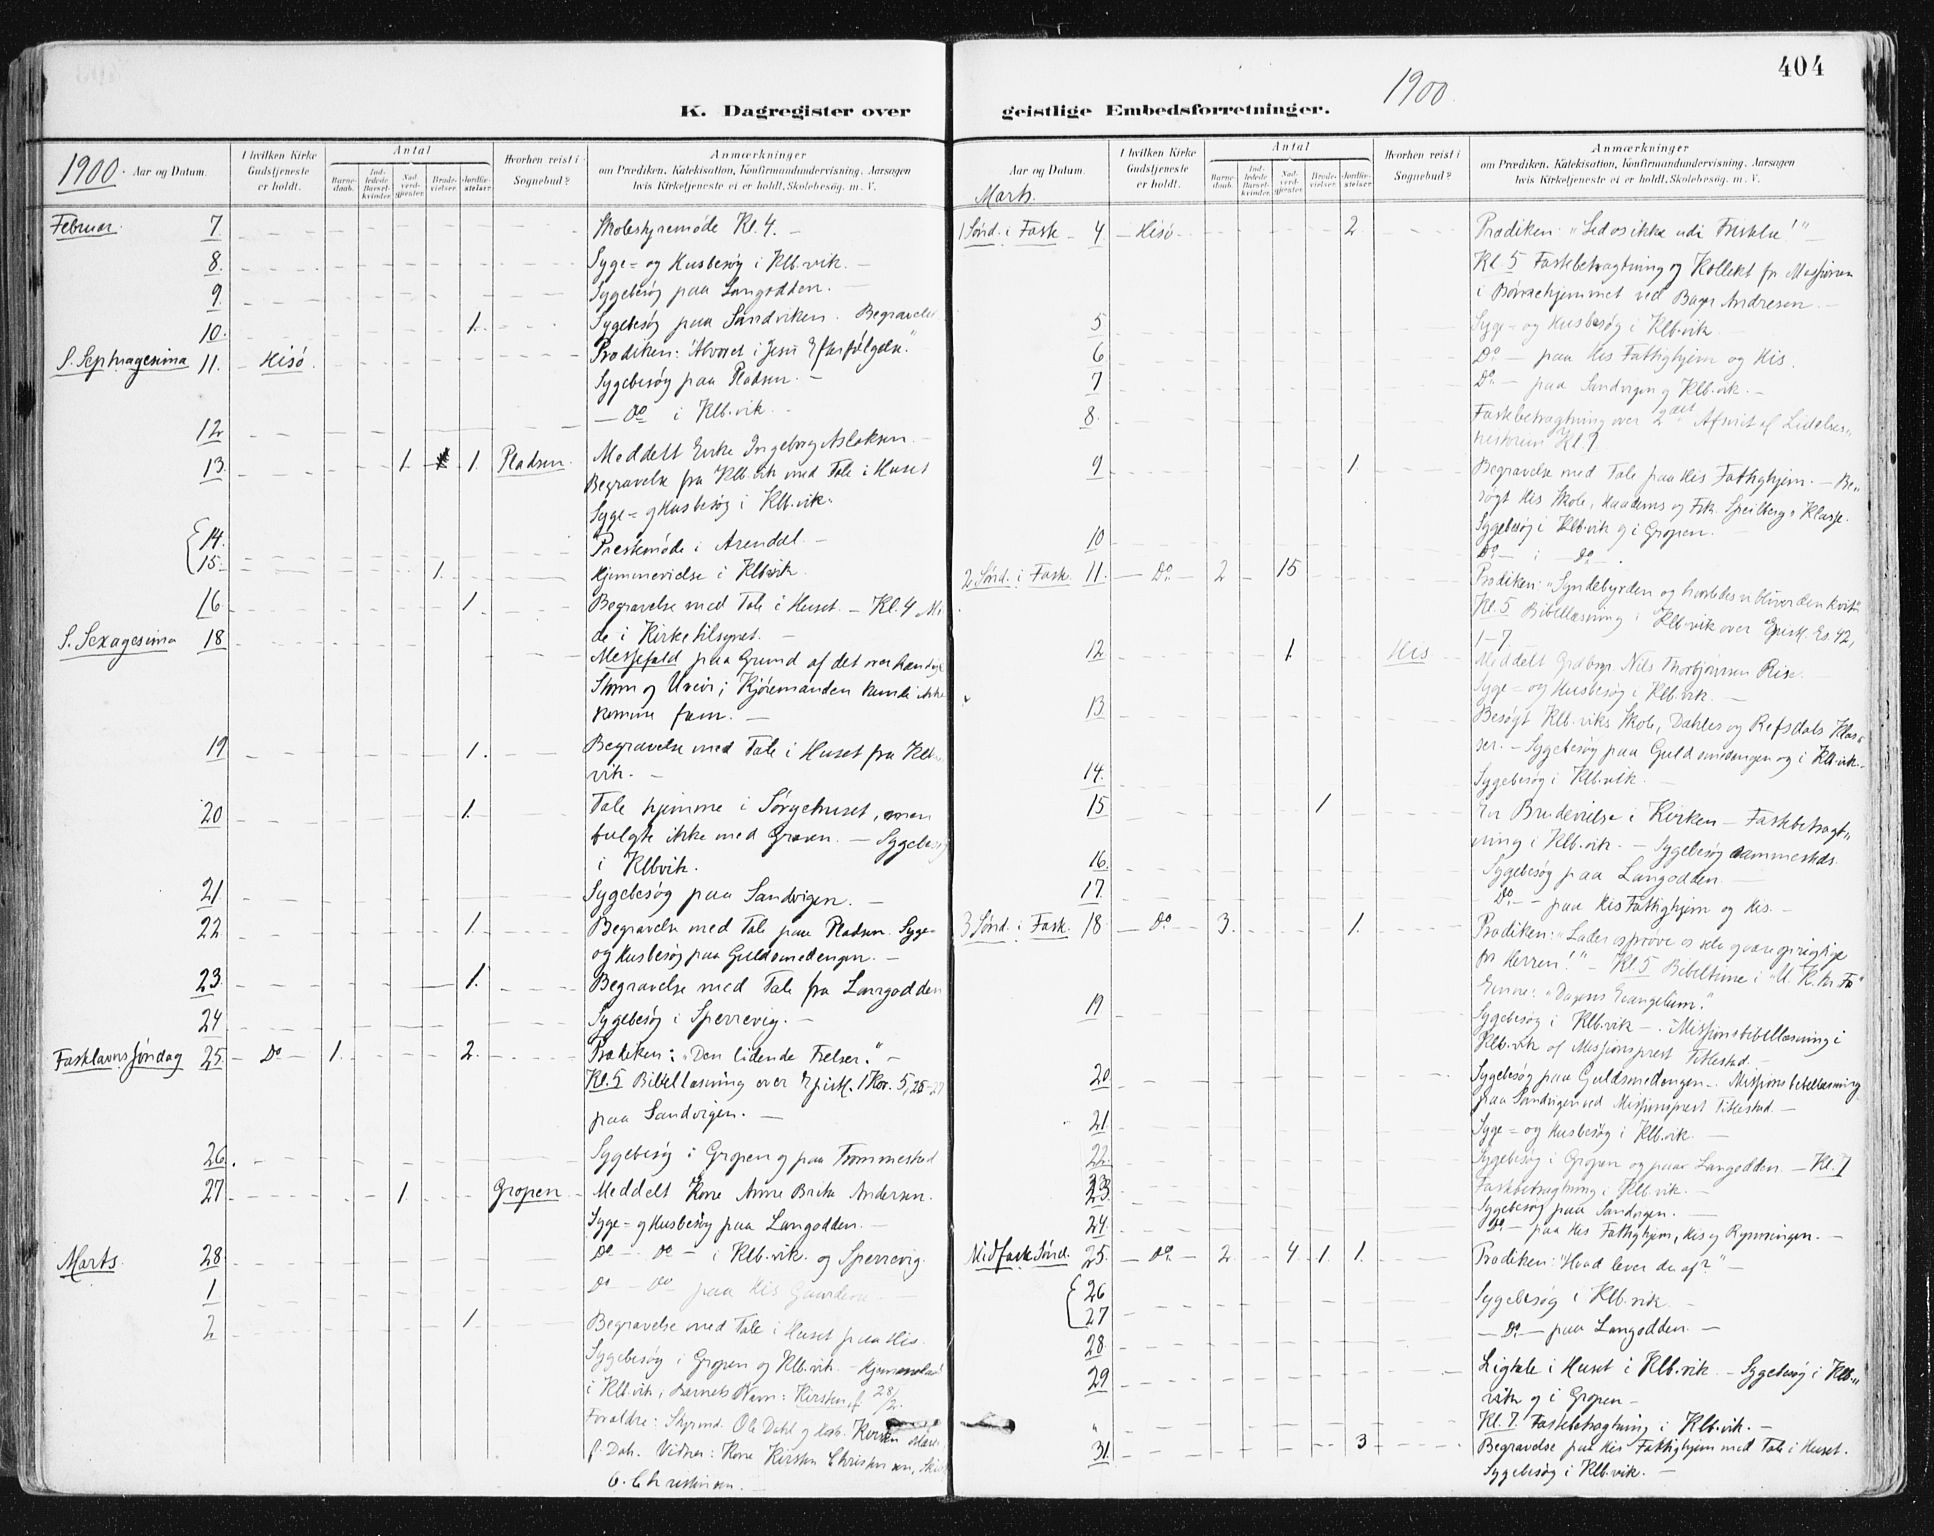 404
1900.
K. Dagregister over
geistlige Embedsforretninger.
1900. Aar og Datum.
I hvilken Kirke Gudstjeneste er holdt.
Antal
Barnedaab.
Indledede Barselkvinder.
Nadverdgjester.
Brudevielser.
Jordfæstelser.
Hvorhen reist i Sognebud?
Anmærkninger
om Prædiken, Katekisation, Konfirmandundervisning, Aarsagen
hvis Kirketjeneste ei er holdt, Skolebesøg, m. V.
Februar. 7 Skolestyremøde Kl. 4. —
8. Syge- og Husbesøg i Klb.vik. —
9 Sygebesøg paa Langodden. —
10. 1. Sygebesøg paa Sandviken. Begravelse
S. Septuagesima 11. Hisö. Prædiken: "Alvoret i Jesu Efterfølgelse."
Sygebesøg paa Pladsen. —
12 — Do i Klb.vik. —
13. 1. 1. Pladsen. Meddelt Enke Ingeborg Aslaksen. —
Begravelse fra Klb.vik med Tale i Huset
Syge- og Husbesøg i Klb.vik.
14. Prestemøde i Arendal. —
15. 1. Hjemmevielse i Klb.vik.
16 1. Begravelse med Tale i Huset. — Kl. 4 Mø-
de i Kirketilsynet. —
S. Sexagesima 18 Messefald paa Grund af det overhændige
Storm og Uveir; Kjøremanden kunde ikke
komme frem. —
19 1. Begravelse med Tale i Huset fra Klb.
vik. —
20 1. Tale hjemme i Sørgehuset, men
fulgte ikke med Graven. — Sygebesøg
i Klbvik.
21 Sygebesøg paa Sandvigen. —
22 1. Begravelse med Tale paa Pladsen. Syge-
og Husbesøg paa Guldsmedengen. —
23 1. Begravelse med Tale fra Langodden
24 Sygebesøg i Sperrevig. —
Fastelavns Søndag 25 — Do — 1. 2. Prædiken: "Den lidende Frelser." —
Kl. 5 Bibellæsning over Epistl. 1 Kor. 5,
paa Sandvigen. —
26. Sygebesøg i Gropen og paa Trommestad
27 1. Gropen Meddelt Kone Anne Brita Andersen.
Syge- og Husbesøg paa Langodden. —
28 Do — Do — i Klb.vik. og Sperrevig.
Marts. 1 Do — Do paa His Gaardene —
2 1. Begravelse med Tale i Huset paa His.
Sygebesøg i Gropen og Klb.vik. —
i Klb.vik, Barnets Navn: Kirsten f. 28/2.
Forældre: Styrmd. Ole Dahl og
f. Dah. Vidner: Kone Kirsten Christensen,
O. Christensen. —
Aar og Datum.
I hvilken Kirke Gudstjeneste er holdt.
Antal
Barnedaab.
Indledede Barselkvinder.
Nadverdgjester.
Brudevielser.
Jordfæstelser.
Hvorhen reist i Sognebud?
Anmærkninger
om Prædiken, Katekisation, Konfirmandundervisning, Aarsagen
hvis Kirketjeneste ei er holdt, Skolebesøg, m. V.
Marts.
1 Sønd. i Fast. 4 — Hisö — 2. Prædiken: "Led os ikke udi Fristelse!" —
Kl. 5 Fastebetragtning og Kollekt for Missionen
i Børnehjemmet ved Bager Andresen. —
5 Syge- og Husbesøg i Klb.vik.
6 Do. — paa His Fattighjem og His.
7 Do. — paa Sandvigen og Klb.vik. —
8. Fastebetragtning over 2det Afsnit af Lidelses-
historien Kl. 7.
9 1. Begravelse med Tale paa His Fattighjem. — Be-
søgt His Skole, og Frk. Speilbergs Klasse.
Sygebesøg i Klb.vik og i Gropen. —
10 Do. — i — Do. —
2 Sønd. i Fast. 11. — Do — 2 15. Prædiken: "Syndebyrden og hvorledes vi bliver den kvit"
Kl. 5 Bibellæsning i Klb.vik over Epistl. Es 42,
1-7
12 1. His Meddelt Grdbgr. Nils Thorbjørnsen Rise. —
Syge- og Husbesøg i Klb.vik. —
13. Besøgt Klb.viks Skole, Dahles og Refsdals Klas-
ser. — Sygebesøg paa Guldsmedengen og i Klb.vik.
14. Sygebesøg i Klb.vik. —
15 1 En Brudevielse i Kirken — Fastebetragt-
ning i Klb.vik. — Sygebesøg sammesteds.
16. Sygebesøg paa Langodden. —
17. Do. — paa His Fattighjem og His. —
3 Sønd. i Fast. 18 — Do — 3. 1. Prædiken: "Lader os prøve os selv og være oprigtige
for Herren!" — Kl. 5 Bibeltime i "U. K. for Fo"
Emne: "Dagens Evangelium."
19 Sygebesøg i Klb.vik — . Missionsbibellæsning i
Klb.vik af Missionsprest Titlestad. —
20 Sygebesøg paa Guldsmedengen. Missionsbibellæsning
paa Sandvigen ved Missionsprest Titlestad. —
21. Syge- og Husbesøg i Klb.vik. —
22 Sygebesøg i Gropen og paa Langodden — Kl. 7
Fastebetragtning i Klb.vik. —
23. Sygebesøg paa Sandvigen. —
24. Do — paa His Fattighjem, His og Rypningen. —
Midfaste Sønd. 25. — Do — 2. 4. 1. 1. Prædiken: "Hvad lever du af?" —
26 Sygebesøg i Klb.vik —
27 — Do. — paa Langodden. —
28.
29 Ligtale i Huset i Klb.vik. — Sygebesøg i Klb.-
vik og i Gropen —
" Kl. 7. Fastebetragtning i Klb.vik. —
31. 3 Begravelse paa His Fattighjem med Tale i Huset.
Sygebesøg i Klb.vik. —